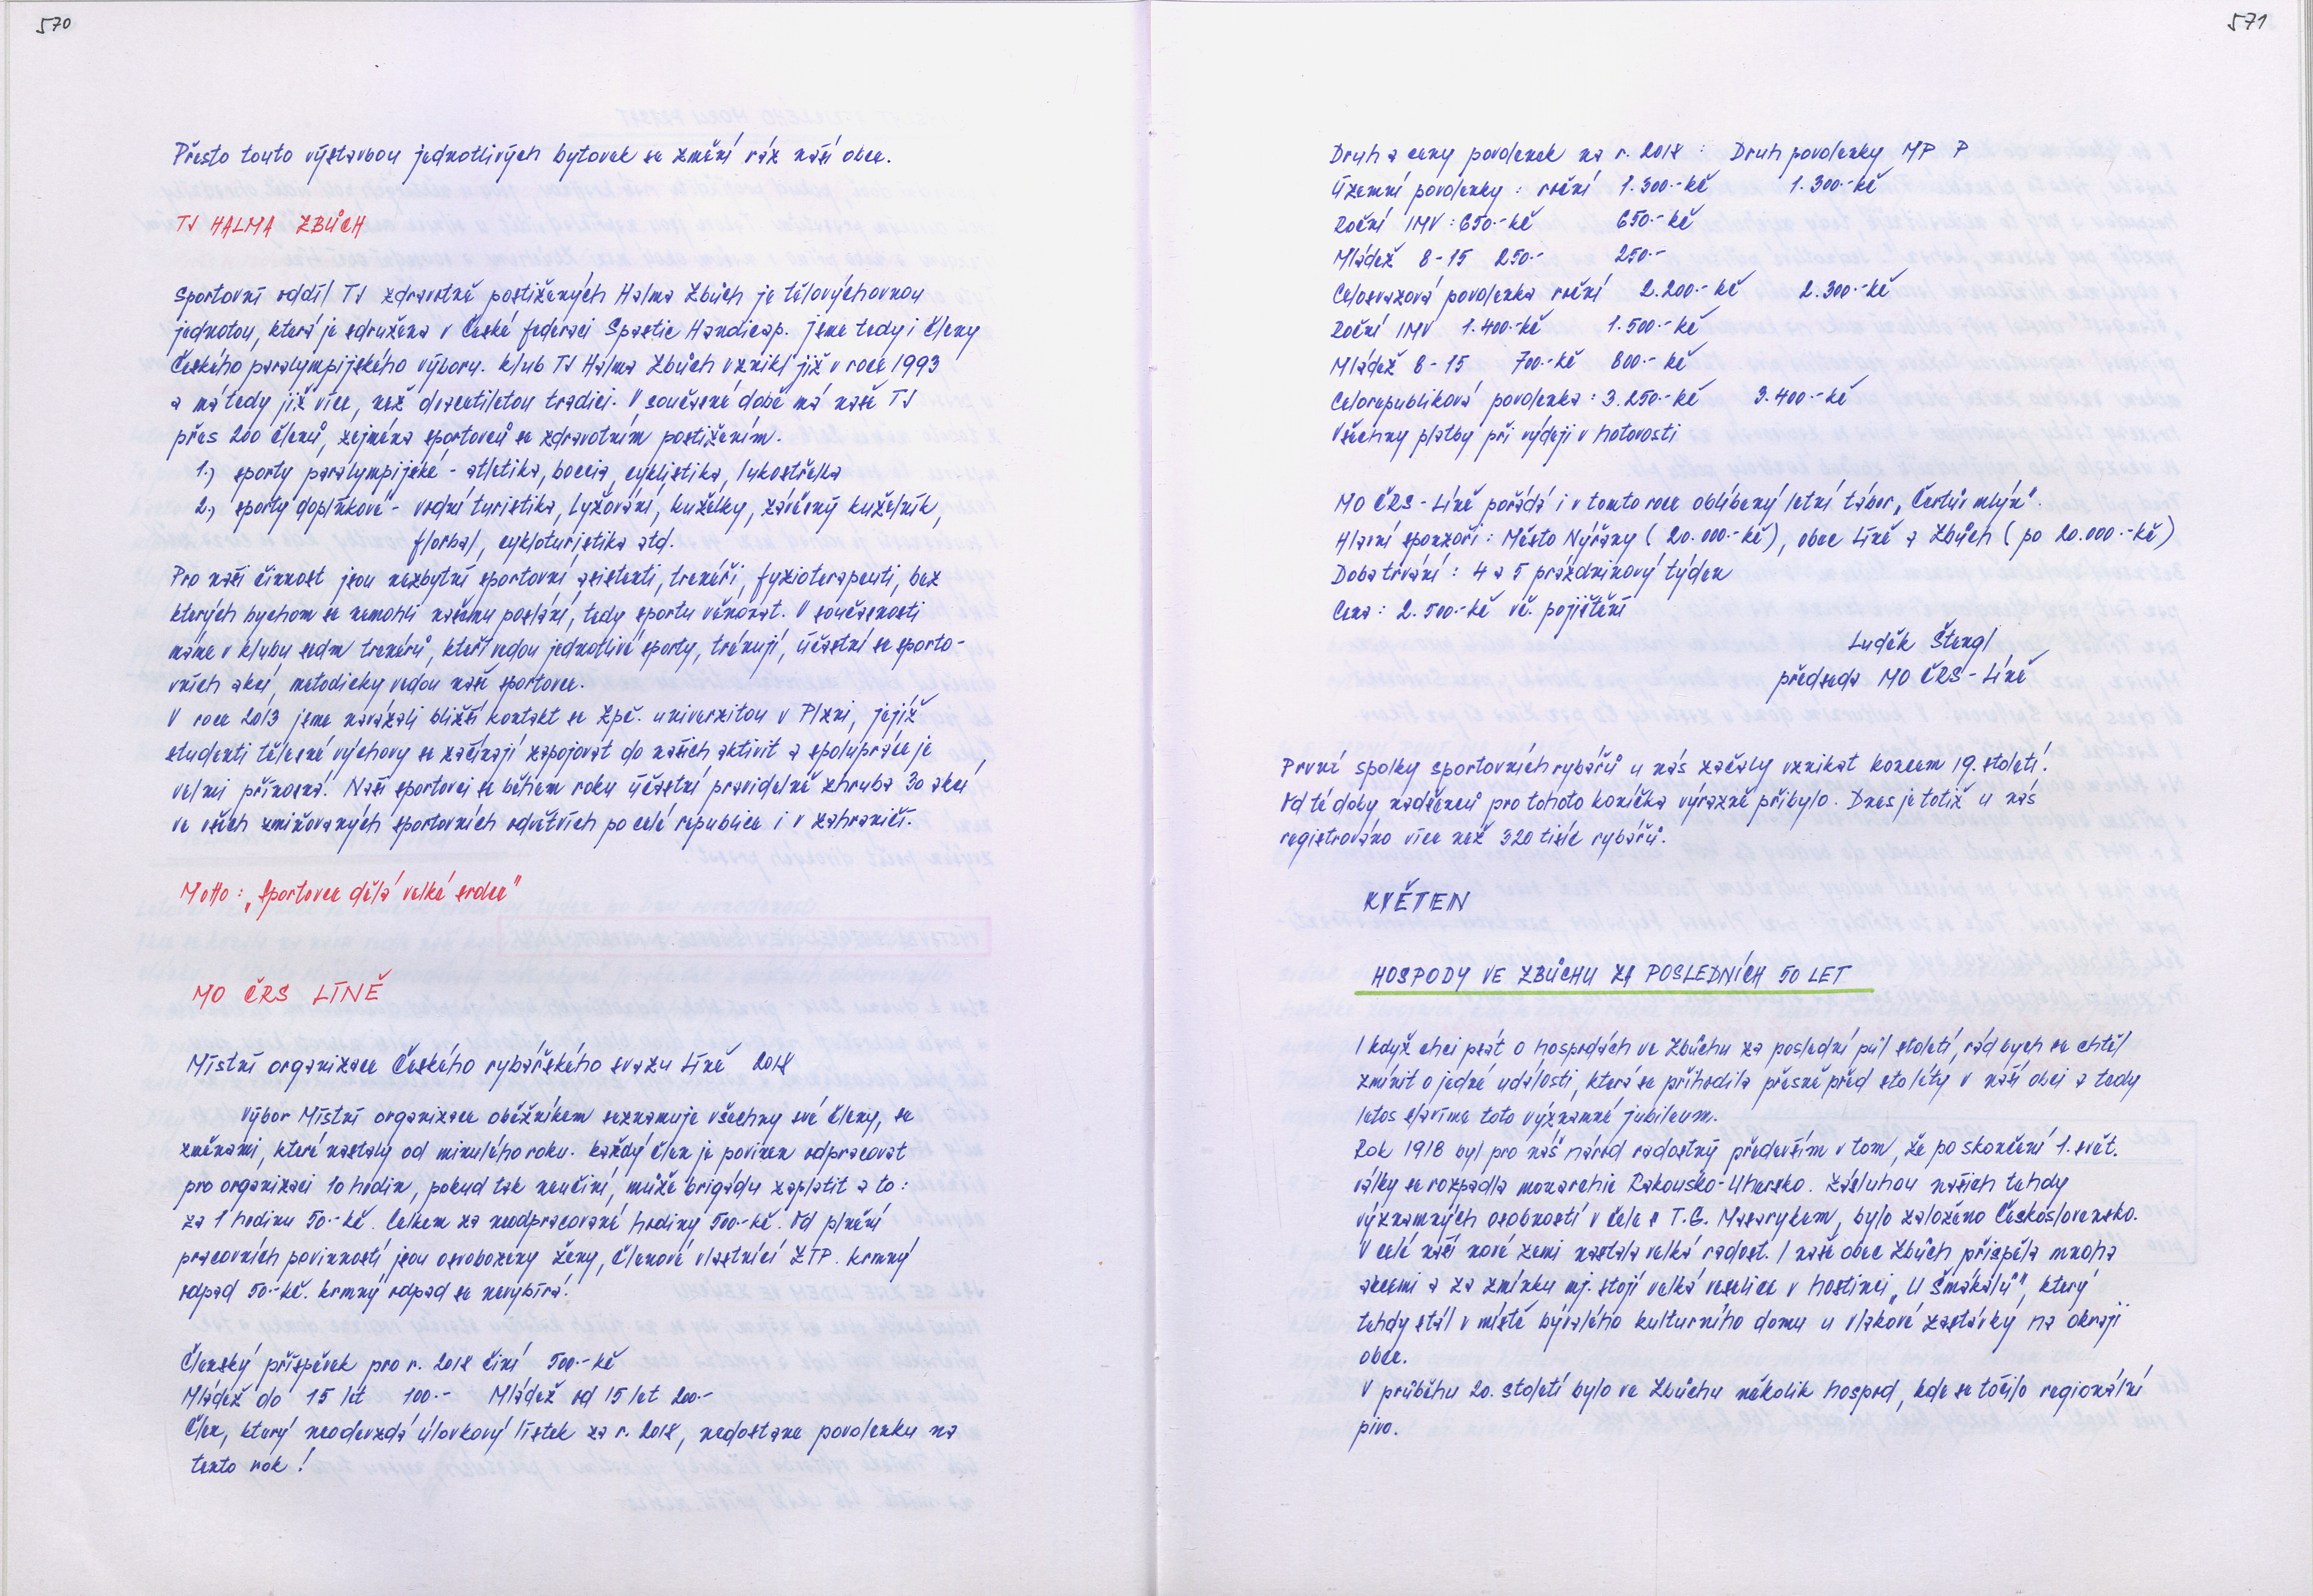 570
Přesto touto výstavbou jednotlivých bytovek se změní ráz naší obce.
TJ HALMA ZBŮCH
Sportovní oddíl TJ zdravotně postižených Halma Zbůch je tělovýchovnou
jednotou, která je sdružena v České federaci Spastic Handicap. Jsme tedy i členy
Českého paralympijského výboru. Klub TJ Halma Zbůch vznikl již v roce 1993
a má tedy již více, než dvacetiletou tradici. V současné době má naše TJ
přes 200 členů, zejména sportovců se zdravotním postižením.
1.) sporty paralympijské - atletika, boccia, cyklistika, lukostřelba
2.) sporty doplňkové - vodní turistika, lyžování, kuželky, závěsný kuželník,
florbal, cykloturistika atd.
Pro naši činnost jsou nezbytní sportovní asistenti, trenéři, fyzioterapeuti, bez
kterých bychom se nemohli našemu poslání, tedy sportu věnovat. V současnosti
máme v klubu sedm trenérů, kteří vedou jednotlivé sporty, trénují, účastní se sporto-
vních akcí, metodicky vedou naše sportovce.
V roce 2013 jsme navázali bližší kontakt se Zpč. univerzitou v Plzni, jejíž
studenti tělesné výchovy se začínají zapojovat do našich aktivit a spolupráce je
velmi přínosná. Naši sportovci se během roku účastní pravidelně zhruba 30 akcí,
ve všech zmiňovaných sportovních odvětvích po celé republice i v zahraničí.
Motto: „Sportovce dělá velké srdce"
MO ČRS LÍNĚ
Místní organizace Českého rybářského svazu Líně 2018
Výbor Místní organizace oběžníkem seznamuje všechny své členy, se
změnami, které nastaly od minulého roku. Každý člen je povinen odpracovat
pro organizaci 10 hodin, pokud tak neučiní, může brigádu zaplatit a to:
za 1 hodinu 50.-Kč. Celkem za neodpracované hodiny 500.-Kč. Od plnění
pracovních povinností jsou osvobozeny ženy, členové vlastnící ZTP. Krmný
odpad 50.-Kč. Krmný odpad se nevybírá!
Členský příspěvek pro r. 2018 činí 500.-Kč
Mládež do 15 let 100.- Mládež od 15 let 200.-
Člen, který neodevzdá úlovkový lístek za r. 2018, nedostane povolenku na
tento rok!
571
Druh a ceny povolenek na r. 2018 : Druh povolenky MP P
Územní povolenky : roční 1.300.-Kč 1.300.-Kč
Roční IMV : 650.-Kč 650.-Kč
Mládež 8-15 250.- 250.-
Celosvazová povolenka roční 2.200.-Kč 2.300.-Kč
Roční IMV 1.400.-Kč 1.500.-Kč
Mládež 8-15 700.-Kč 800.-Kč
Celorepubliková povolenka : 3.250.-Kč 3.400.-Kč
Všechny platby při výdeji v hotovosti
MO ČRS - Líně pořádá i v tomto roce oblíbený letní tábor „Čertův mlýn".
Hlavní sponzoři: Město Nýřany (20.000.-Kč), obec Líně a Zbůch (po 20.000.-Kč)
Doba trvání : 4 a 5 prázdninový týden
Cena : 2.500.-Kč vč. pojištění
Luděk Štengl
předseda MO ČRS - Líně
První spolky sportovních rybářů u nás začaly vznikat koncem 19. století.
Od té doby nadšenců pro tohoto koníčka výrazně přibylo. Dnes je totiž u nás
registrováno více než 320 tisíc rybářů.
KVĚTEN
HOSPODY VE ZBŮCHU ZA POSLEDNÍCH 50 LET
I když chci psát o hospodách ve Zbůchu za poslední půl století, rád bych se chtěl
zmínit o jedné události, která se přihodila přesně před sto léty v naší obci a tedy
letos slavíme toto významné jubileum.
Rok 1918 byl pro náš národ radostný především v tom, že po skončení 1. svět.
války se rozpadla monarchie Rakousko-Uhersko. Zásluhou našich tehdy
významných osobností v čele s T.G. Masarykem, bylo založeno Československo.
V celé naší nové zemi nastala velká radost. I naše obec Zbůch přispěla mnoha
akcemi a za zmínku mj. stojí velká veselice v hostinci „U Šmákalů", který
tehdy stál v místě bývalého kulturního domu u vlakové zastávky na okraji
obce.
V průběhu 20. století bylo ve Zbůchu několik hospod, kde se točilo regionální
pivo.